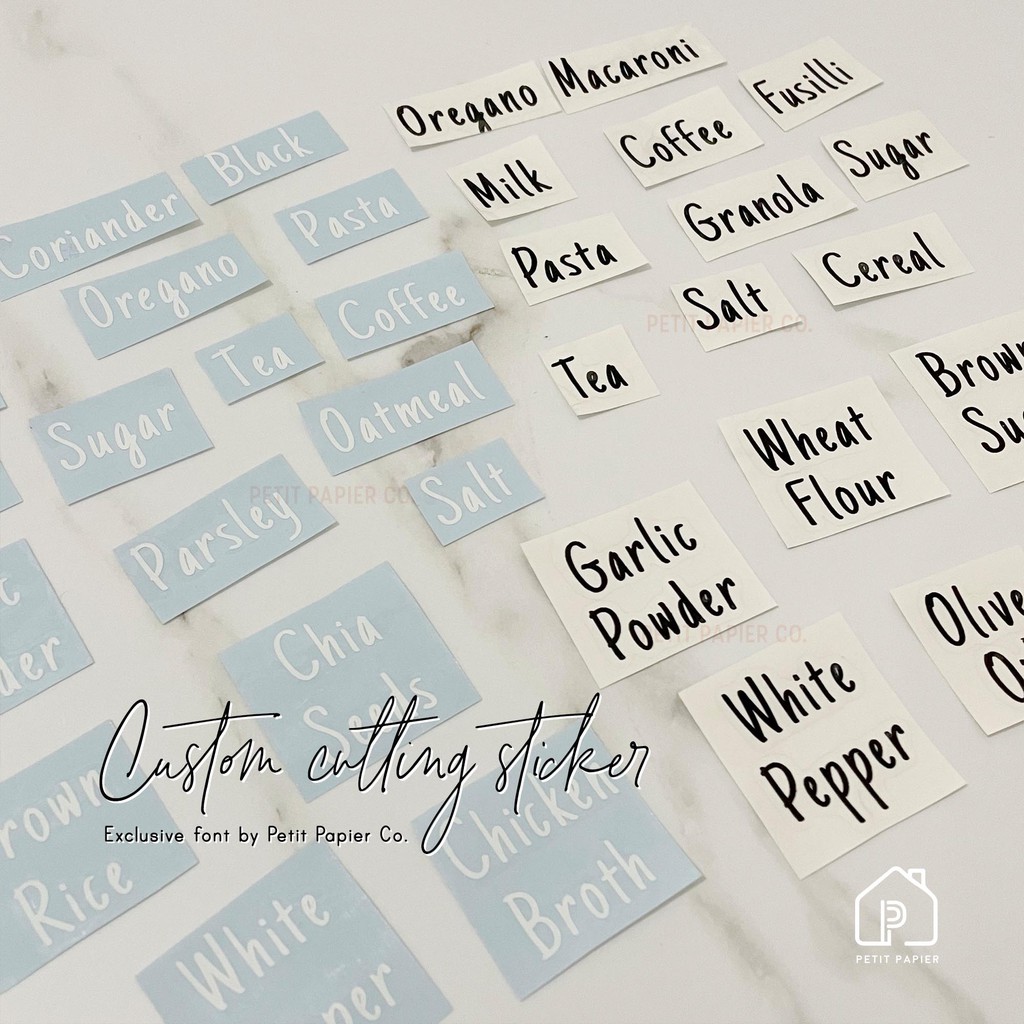 Oregano
Macaroni
Fusilli
Black
Milk
Coffee
Sugar
Coriander
Pasta
Granola
Oregano
Pasta
Cereal
Coffee
Salt
PETIT PAPIER CO.
Tea
Tea
Brown
Oatmeal
Sugar
Wheat
Flour
Salt
PETIT PAPIER CO.
Parsley
Garlic
Powder
PETIT PAPIER CO.
Olive
Chia
Seeds
White
Pepper
Custom cutting sticker
Exclusive font by Petit Papier Co.
Chicken
Broth
Rice
White
PETIT PAPIER